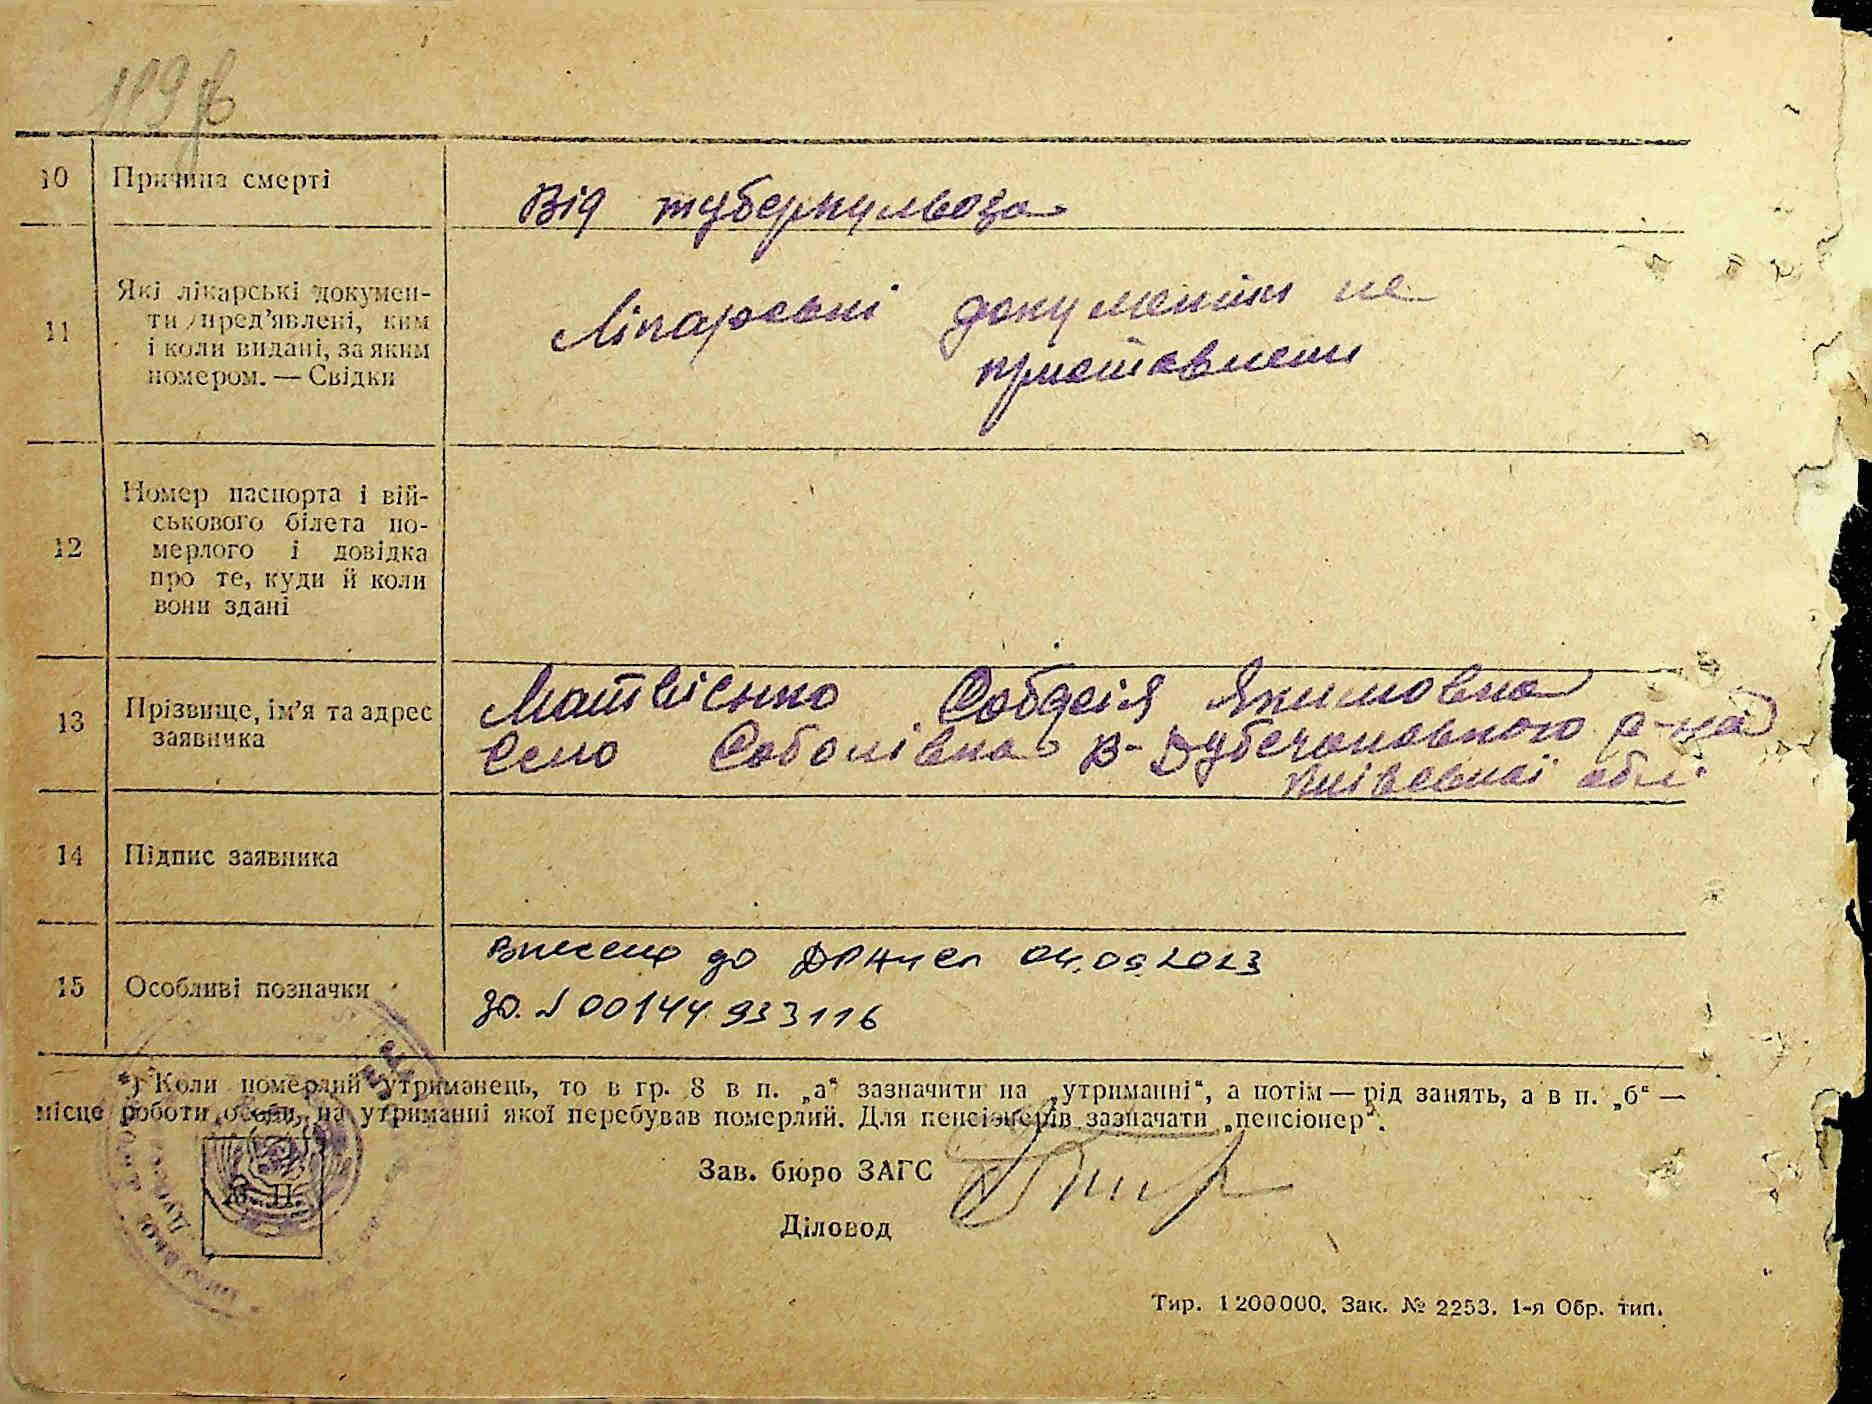 119
10 Причина смерті
Від туберкульоза
11 Які лікарські документи пред'явлені, ким
і коли видані, за яким
номером. — Свідки
Лікарські документи не
приставлени
12 Номер паспорта і вій-
ськового білета по-
мерлого і довідка
про те, куди й коли
вони здані
13 Прізвище, ім'я та адрес
заявника
Матвієнко Якимовна
Село Соболівка В-Дубечанського р-на
Київської обл.
14 Підпис заявника
15 Особливі позначки
Внесено до 04.09.2023
№ 00144933116
*) Коли померлий утриманець, то в гр. 8 в п. „а“ зазначити на „утриманні“, а потім — рід занять, а в п. „б“ —
місце роботи особи, на утриманні якої перебував померлий. Для пенсіонерів зазначати „пенсіонер“.
Зав. бюро ЗАГС
Діловод
Тир. 1200000. Зак. № 2253. 1-я Обр. тип.